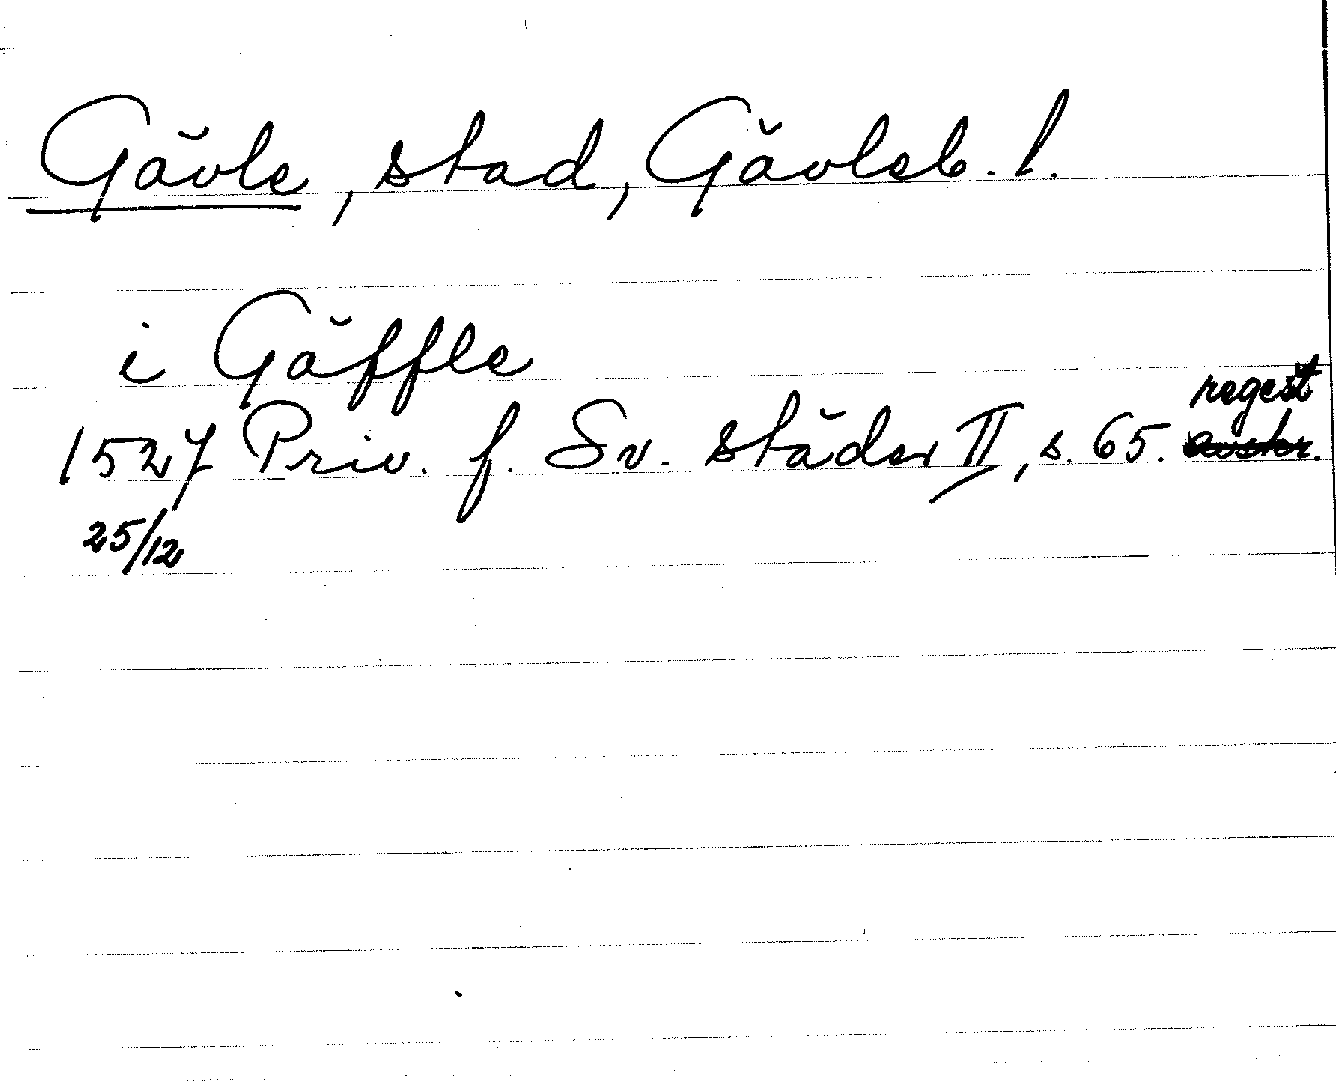 Gävle, stad, Gävleb. l.
i Gäffle
regest
1527 Priv. f. Sv. städer II, s. 65. avskr.
25/12